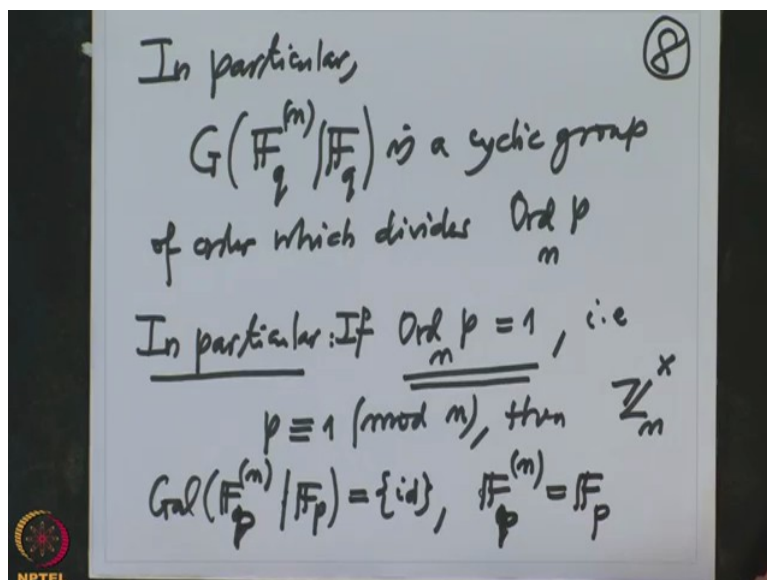 In particular, ⑧
G(𝔽_q^(n) | 𝔽_q) is a cyclic group
of order which divides Ord_n p
In particular: If Ord_n p = 1, i.e
p ≡ 1 (mod n), then ℤ_n^×
Gal(𝔽_p^(n) | 𝔽_p) = {id}, 𝔽_p^(n) = 𝔽_p
NPTEL